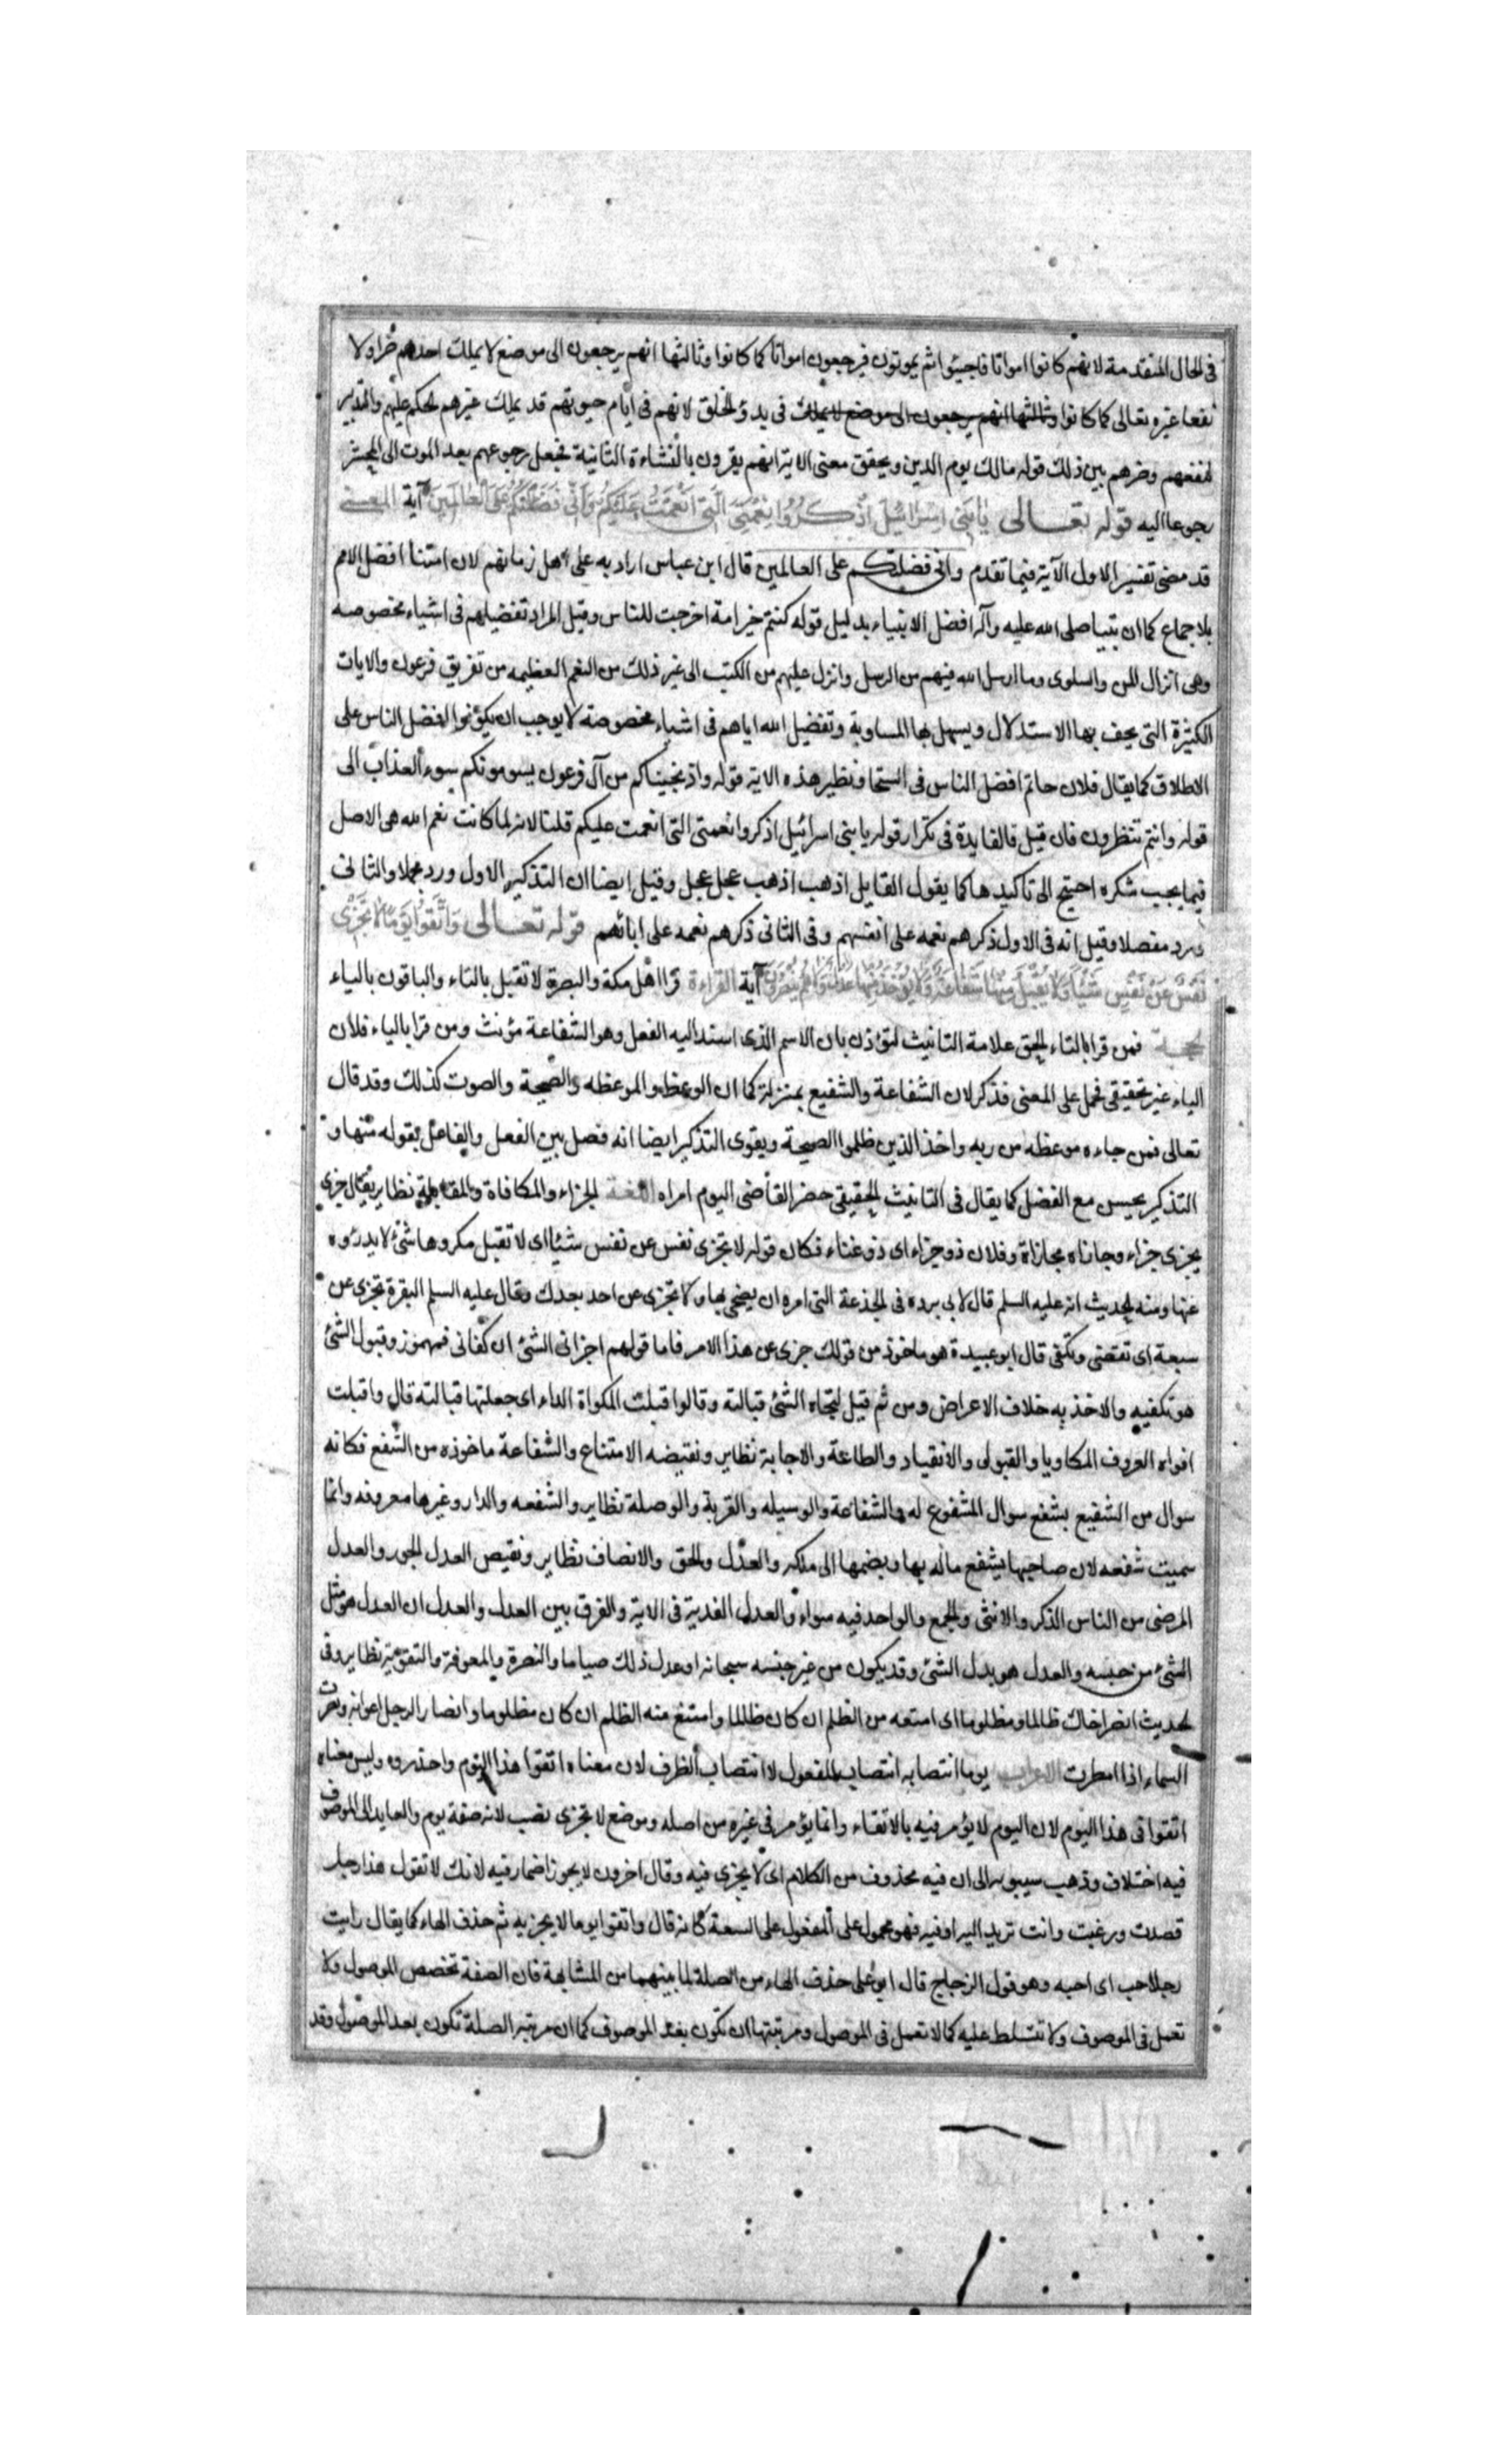 فى الحال المتقدمة لانهم كانوا امواتا فاحيئوا ثم يموتون فيرجعون امواتا كما كانوا وثالثها انهم يرجعون الى موضع لا يملك احدهم ضرا ولا
نفعا غيره تعالى كما كانوا وثالثها انهم يرجعون الى موضع لا يملك فى بدؤ الخلق لانهم فى ايام حيوتهم قد يملك غيرهم الحكم عليهم والتدبير
لنفعهم وضرهم بين ذلك قوله مالك يوم الدين ويحقق معنى الاية انهم يقرون بالنشاءة الثانية فجعل رجوعهم بعد الموت الى المحشر
رجوعا اليه قوله تعالى يا بَنِي اِسْرائيلَ اذْكُرُوا نِعْمَتِيَ الَّتي اَنْعَمْتُ عَلَيْكُمْ وَاَنّي فَضَّلْتُكُمْ عَلَى الْعٰالَمِينَ آية المعنى
قد مضى تفسير الاول الآية فيما تقدم وانى فضلتكم على العالمين قال ابن عباس اراد به على اهل زمانهم لان امتنا افضل الامم
بلاجماع كما ان نبينا صلى الله عليه وآله افضل الانبياء بدليل قوله كنتم خير امة اخرجت للناس وقيل المراد تفضيلهم فى اشياء مخصوصه
وهى انزال المن والسلوى وما ارسل الله فيهم من الرسل وانزل عليهم من الكتب الى غير ذلك من النعم العظيمه من تغريق فرعون والايات
الكثيرة التى يخف بها الاستدلال ويسهل بها المساوية وتفضيل الله اياهم فى اشياء مخصوصة لا يوجب ان يكونوا افضل الناس على
الاطلاق كما يقال فلان حاتم افضل الناس فى السخا ونظير هذه الاية قوله واذ نجيناكم من آل فرعون يسومونكم سوء العذاب الى
قوله وانتم تنظرون فان قيل فالفايدة فى تكرار قوله يا بنى اسرائيل اذكروا نعمتى التى انعمت عليكم قلنا لانه لما كانت نعم الله هى الاصل
فيما يجب شكره احتيج الى تاكيدها كما يقول القايل اذهب اذهب عجل عجل وقيل ايضا ان التذكير الاول ورد مجملا والثانى
ورد مفصلا وقيل انه فى الاول ذكرهم نعمه على انفسهم وفى الثانى ذكرهم نعمه على ابائهم قوله تعالى وَاتَّقُوا يَوْمًا لا تَجْزِي
نَفْسٌ عَنْ نَفْسٍ شَيْئًا وَلا يُقْبَلُ مِنْها شَفاعَةٌ وَلا يُؤْخَذُ مِنْها عَدْلٌ وَلا هُمْ يُنْصَرُونَ آية القراءة قرا اهل مكة والبصرة لا تقبل بالتاء والباقون بالياء
الحجة فمن قرا بالتاء الحق علامة التانيث لتؤذن بان الاسم الذى اسند اليه الفعل وهو الشفاعة مؤنث ومن قرا بالياء فلان
الياء غير تحقيقى فحمل على المعنى فذكر لان الشفاعة والشفيع بمنزلة كما ان الوعظ والموعظه والصيحة والصوت كذلك وقد قال
تعالى فمن جاءه موعظه من ربه واخذ الذين ظلموا الصيحة ويقوى التذكير ايضا انه فصل بين الفعل والفاعل بقوله منها و
التذكير يحسن مع الفضل كما يقال فى التانيث الحقيقى حضر القاضى اليوم امراه اللغة الجزاء والمكافاة والمقابلة نظاير يقال جزى
يجزى جزاء وجازاه مجازاة وفلان ذو جزاء اى ذو غناء فكان قوله لا تجزى نفس عن نفس شيئا اى لا تقبل مكروها شئ لا يدرؤه
عنها ومنه الحديث انه عليه السلم قال لابى برده فى الجذعة التى امره ان يضحى بها ولا تجزى عن احد بعدك وقال عليه السلم البقرة تجزى عن
سبعة اى تقتضى وتكفى قال ابو عبيدة هو ماخوذ من قولك جزى عن هذا الامر فاما قولهم اجزانى الشئ ان كفانى فمهموز وقبول الشئ
هو تكفيه والاخذ به خلاف الاعراض ومن ثم قيل لتجاه الشئ قبالته وقالوا قبلت المكواة الداء اى جعلتها قبالته قال واقبلت
افواه العروف المكاويا والقبول والانقياد والطاعة والاجابة نظاير ونقيضه الامتناع والشفاعة ماخوذه من الشفع فكانه
سوال من الشفيع بشفع سوال المشفوع له والشفاعة والوسيله والقربة والوصلة نظاير والشفعه والدار وغيرها معروفه وانما
سميت شفعه لان صاحبها يشفع ماله بها ويضمها الى ملكه والعدل والحق والانصاف نظاير ونقيض العدل الجور والعدل
المرضى من الناس الذكر والانثى والجمع والواحد فيه سواء والعدل الفدية فى الاية والفرق بين العدل والعدل ان العدل هو مثل
الشئ من جنسه والعدل هو بدل الشئ وقد يكون من غير جنسه سبحانه او عدل ذلك صياما والنصرة والمعونة والتقوية نظاير وفى
الحديث انصر اخاك ظالما ومظلوما اى امنعه من الظلم ان كان ظالما وامتنع منه الظلم ان كان مظلوما وانصار الرجل اعوانه ونصرت
السماء اذا امطرت الاعراب يوما انتصابه انتصاب المفعول لا انتصاب الظرف لان معناه اتقوا هذا اليوم واحذروه وليس معناه
اتقوا فى هذا اليوم لان اليوم لا يؤمر فيه بالاتقاء وانما يؤمر فى غيره من اصله وموضع لا تجزى نصب لانه صفة يوم والعايد الى الموصوف
فيه اختلاف وذهب سيبويه الى ان فيه محذوف من الكلام اى لا يجزى فيه وقال اخرون لا يجوز اضمار فيه لانك لا تقول هذا رجل
قصدت ورغبت وانت تريد اليه او فيه فهو محمول على المفعول على السعة كانه قال واتقوا يوما لا يجزيه ثم حذف الهاء كما يقال رايت
رجلا حب اى احبه وهو قول الزجاج قال ابو على حذف الهاء من الصلة لما بينهما من المشابهة فان الصفة تخصص الموصول ولا
تعمل فى الموصوف ولا تتسلط عليه كما لا تعمل فى الموصول ومرتبتها ان تكون بعد الموصوف كما ان مرتبة الصلة تكون بعد الموصول وقد